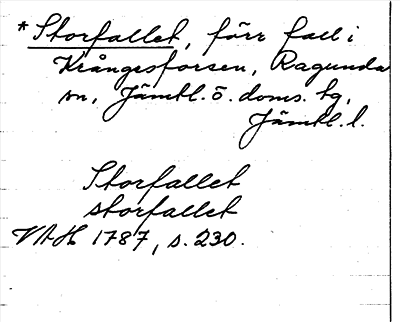 * Storfallet, förr fall i
Krångesforsen, Ragunda
sn, Jämtl. ö. doms. tg,
Jämtl. l.
Storfallet
storfallet
VAH 1787, s. 230.